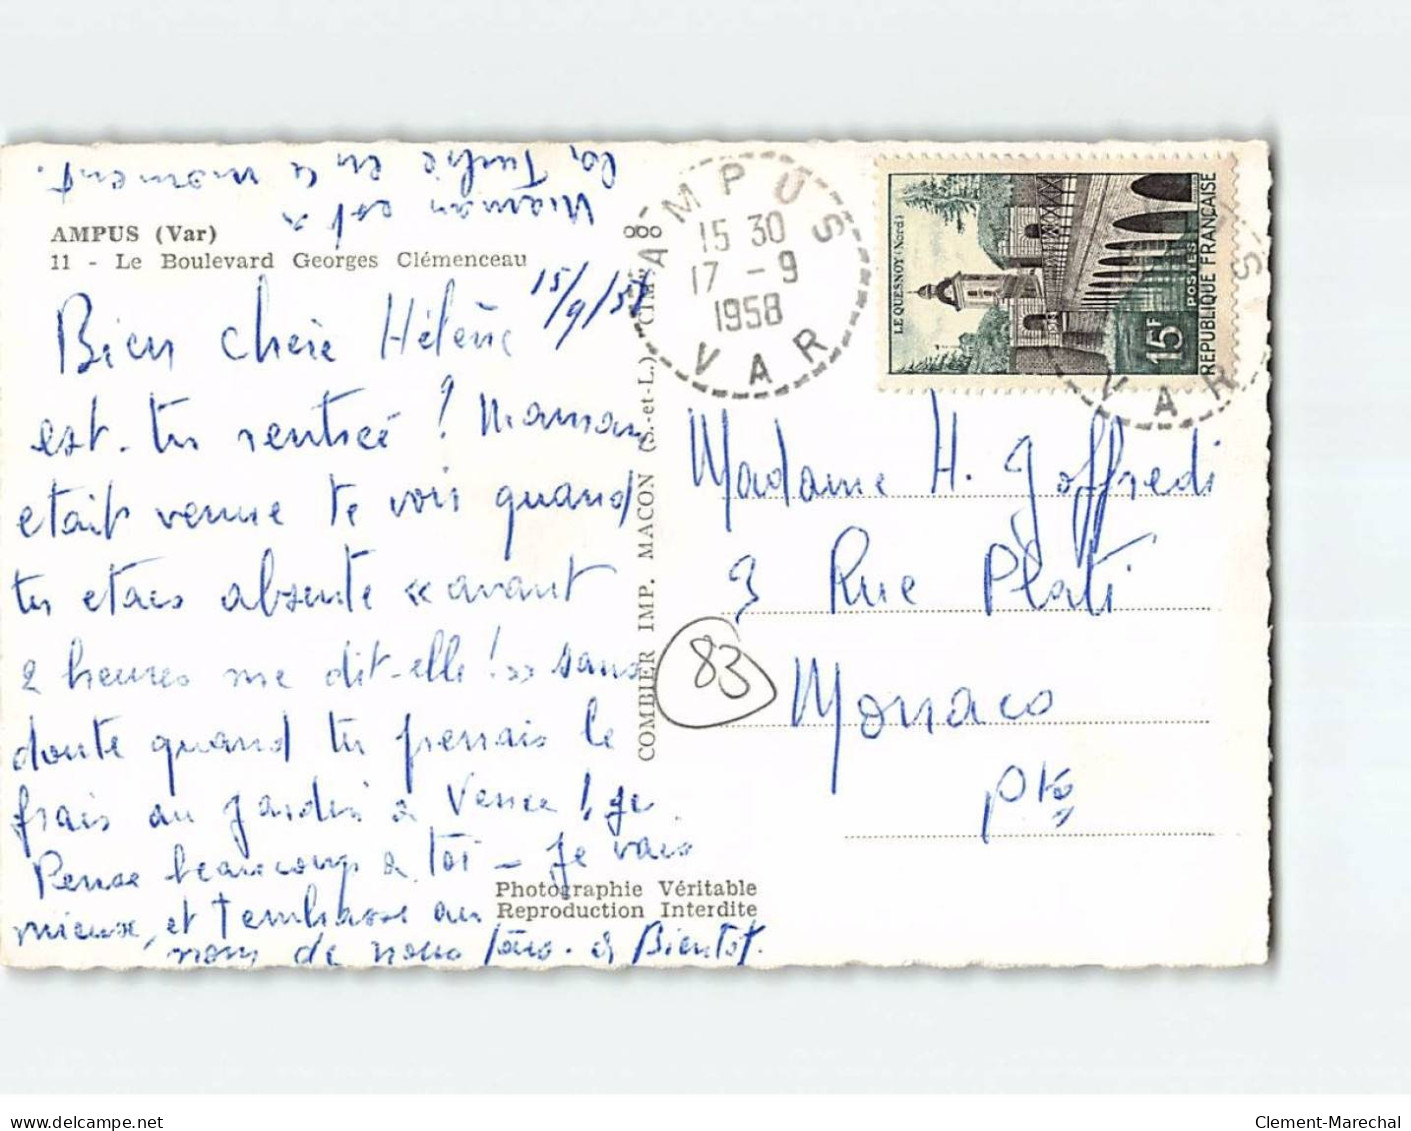 Maman est à
la Turbie en ce
moment.
AMPUS (Var)
11 - Le Boulevard Georges Clémenceau
15/9/58
Bien chère Hélène
est-tu rentrée ? Maman
etait venue te voir quand
tu etais absente « avant
2 heures me dit-elle ! » sans
doute quand tu prenais le
frais au jardin à Vence ! je
Pense beaucoup à toi - Je vais
mieux, et t'embrasse au
nom de nous tous. à Bientot.
Photographie Véritable
Reproduction Interdite
COMBIER IMP. MACON (S.-et-L.) CIM
AMPUS
15 30
17 - 9
1958
VAR
LE QUESNOY (Nord)
15F
POSTES
REPUBLIQUE FRANÇAISE
S
VAR
Madame H. Joffredi
3 Rue Plati
Monaco
Pté
83
delcampe.net
Clement-Marechal